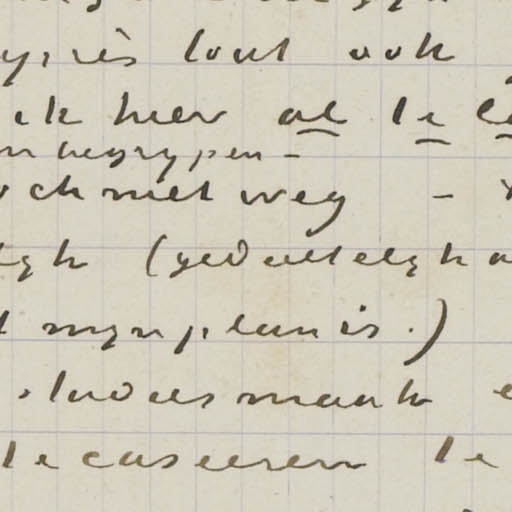 laat ook
ik hier al te
begrypen -
och niet weg -
(gedeeltelyk
myn plan is.)
studies maak
te caseeren te